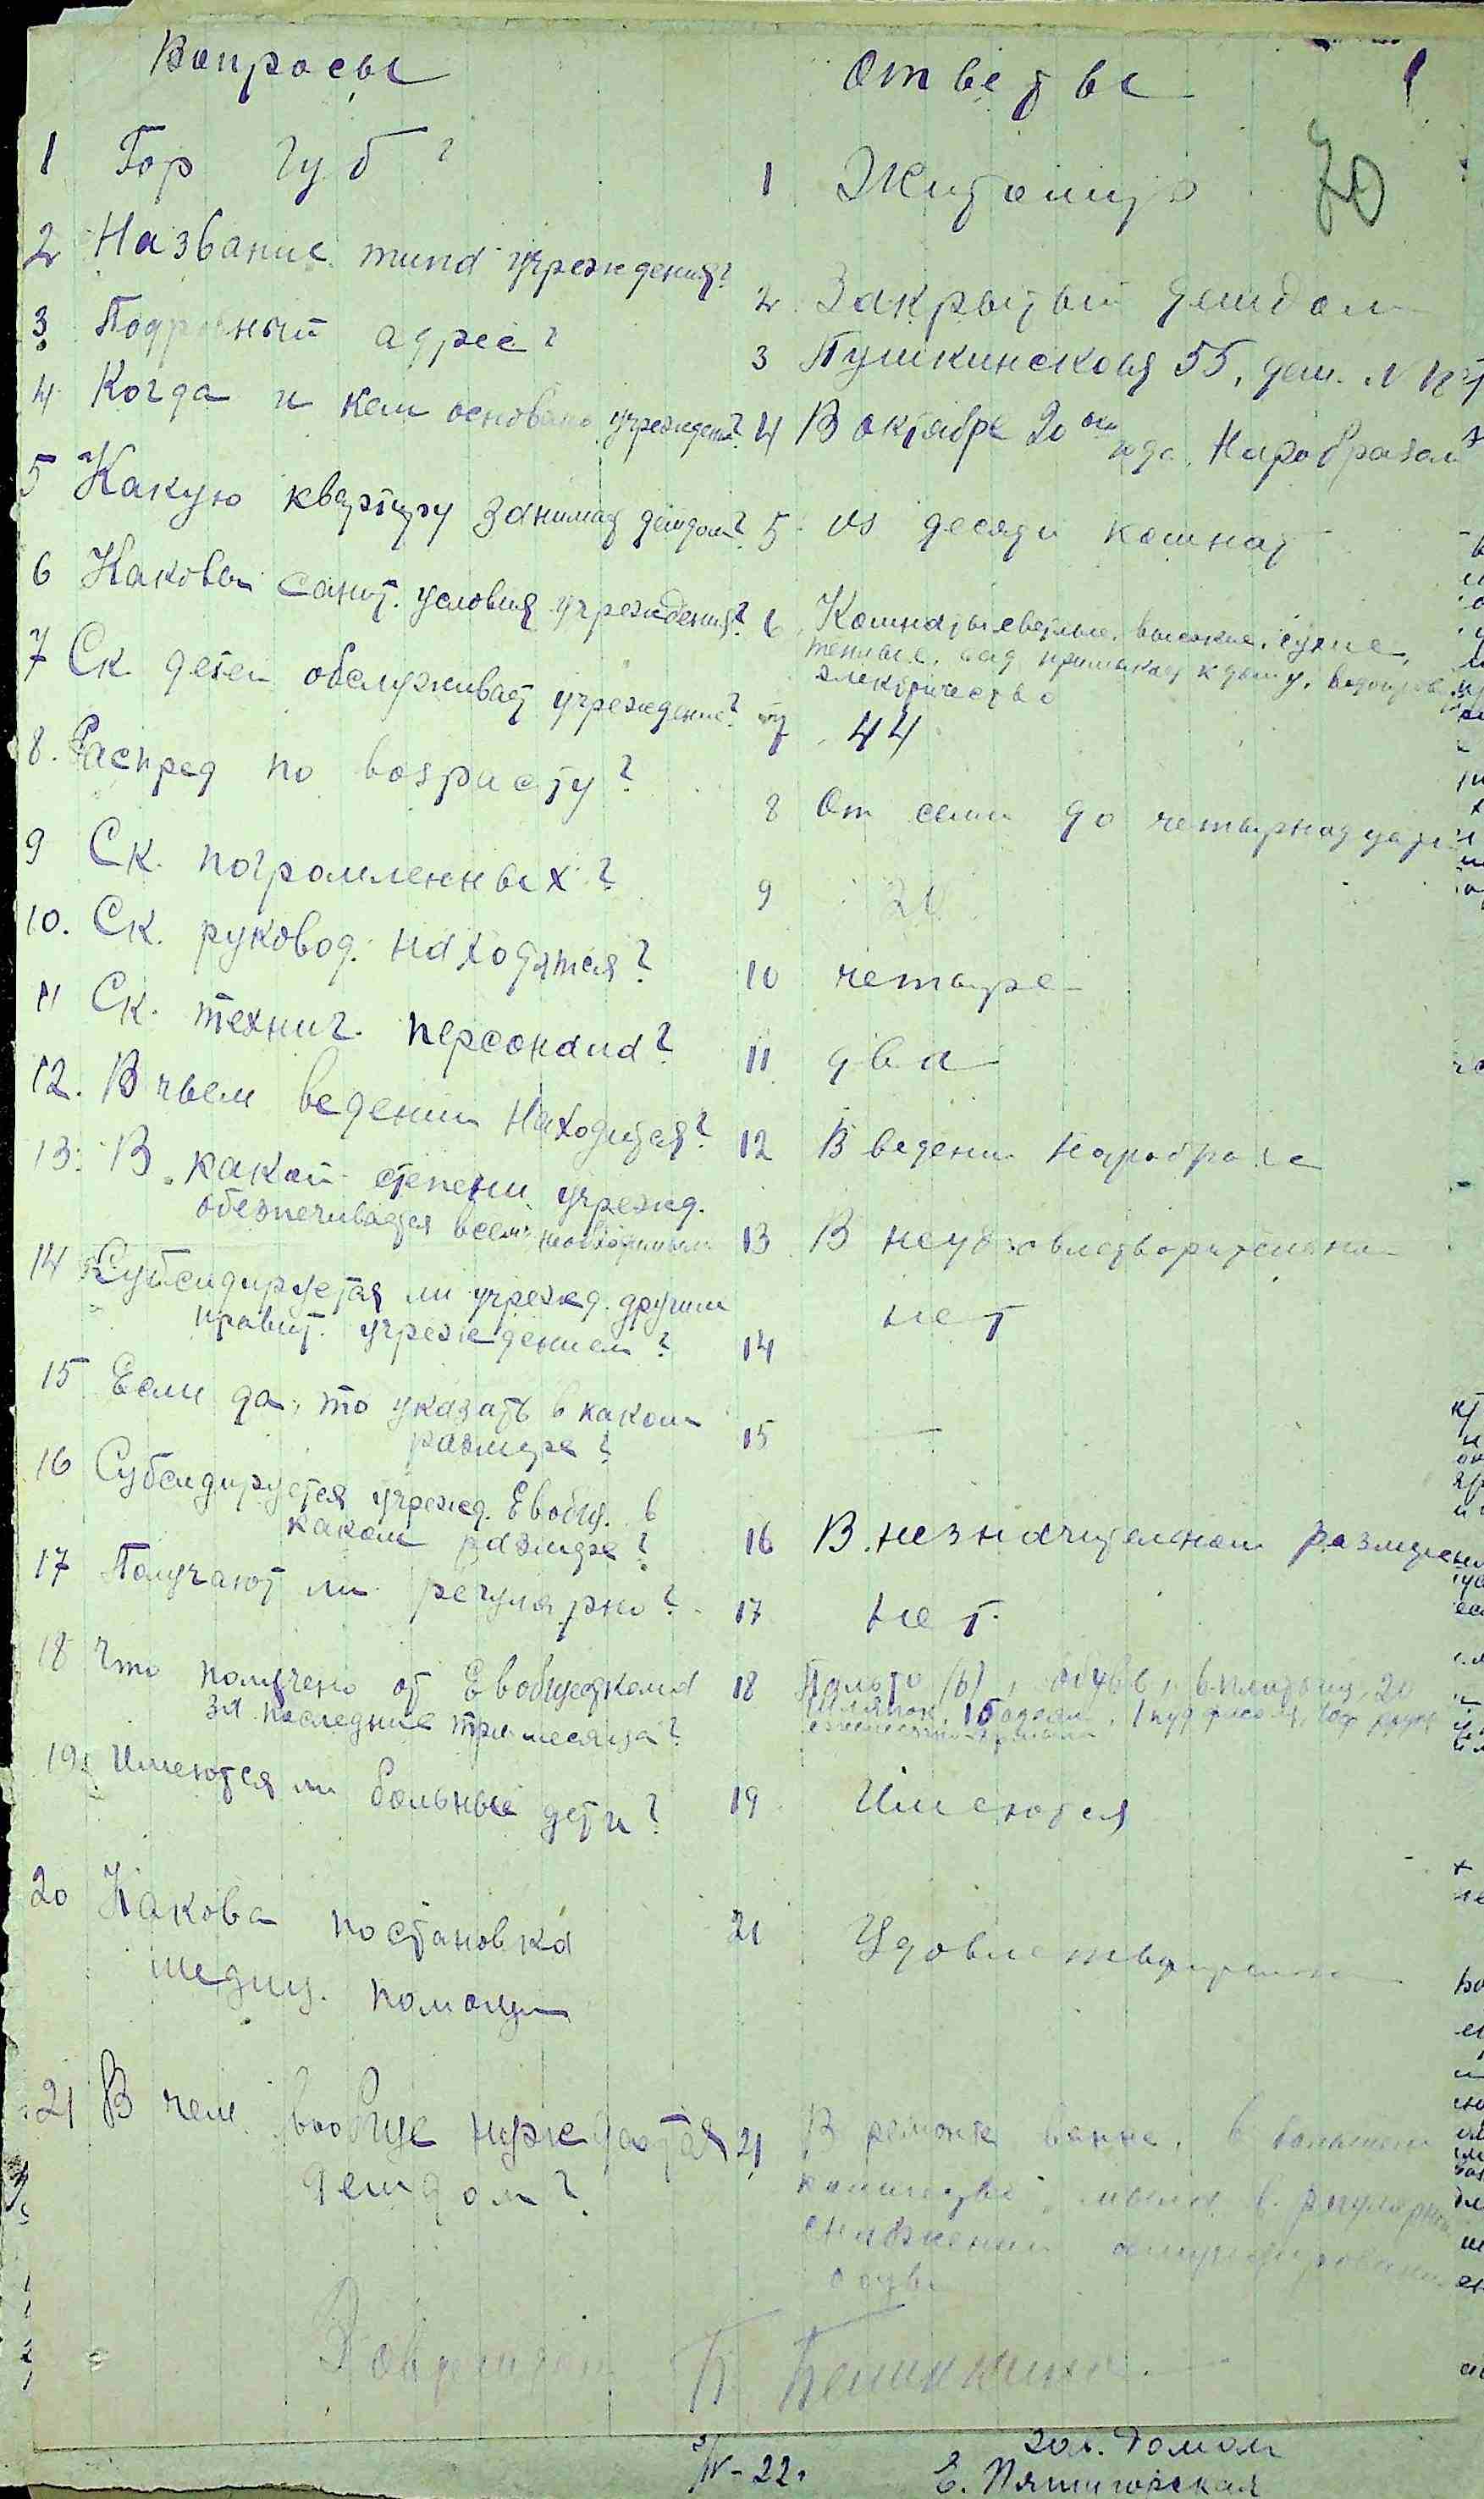 Вопросы
Ответы
1 Гор губ?
1 Житомир
70
2 Название типа учреждения?
2 Закрытый детдом
3 Подробный адрес?
3 Пушкинская 55, дет.
4 Когда и кем основано учрежден?
4 В октябре 20 ого года Наробразом
5 Какую квартиру занимает детдом?
5 Из десяти комнат
6 Каковы санит. условия учреждения?
6 Комнаты светлые, высокие, сухие,
теплые, сад примыкает к дому, водопров.
электричество
7 Ск. детей обслуживает учреждение?
7 44
8. Распред по возрасту?
8 От семи до четырнадцати
9 Ск. погромленных?
9 20
10. Ск. руковод. находятся?
10 четыре
11 Ск. технич. персонала?
11 два
12. В чьем ведении находится?
12 В ведении Наробраза
13. В какой степени учрежд.
обезпечивается всем необходимым
13 В неудовлетворительной
14 Субсидируется ли учрежд. другим
правит. учреждением?
14 нет
15 Если да, то указать в каком
размере?
15 —
16 Субсидируется учрежд. Евобщ. в
каком размере?
16 В незначительном размере
17 Получают ли регулярно?
17 Нет.
18 Что получено от Евобщесткома
за последние три месяца?
18 Пальто (6), обувь, 20
шляпок, 15 одеял, 1 пуд
19. Имеются ли больные дети?
19 Имеются
20 Какова постановка
медиц. помощи
21 Удовлетворительна
21 В чем вообще нуждается
детдом?
21 В ремонте ванне, в большем
количестве мыла в регулярном
снабжении
обуви
3/IV-22.
Зав. Домом
Е. Пятигорская